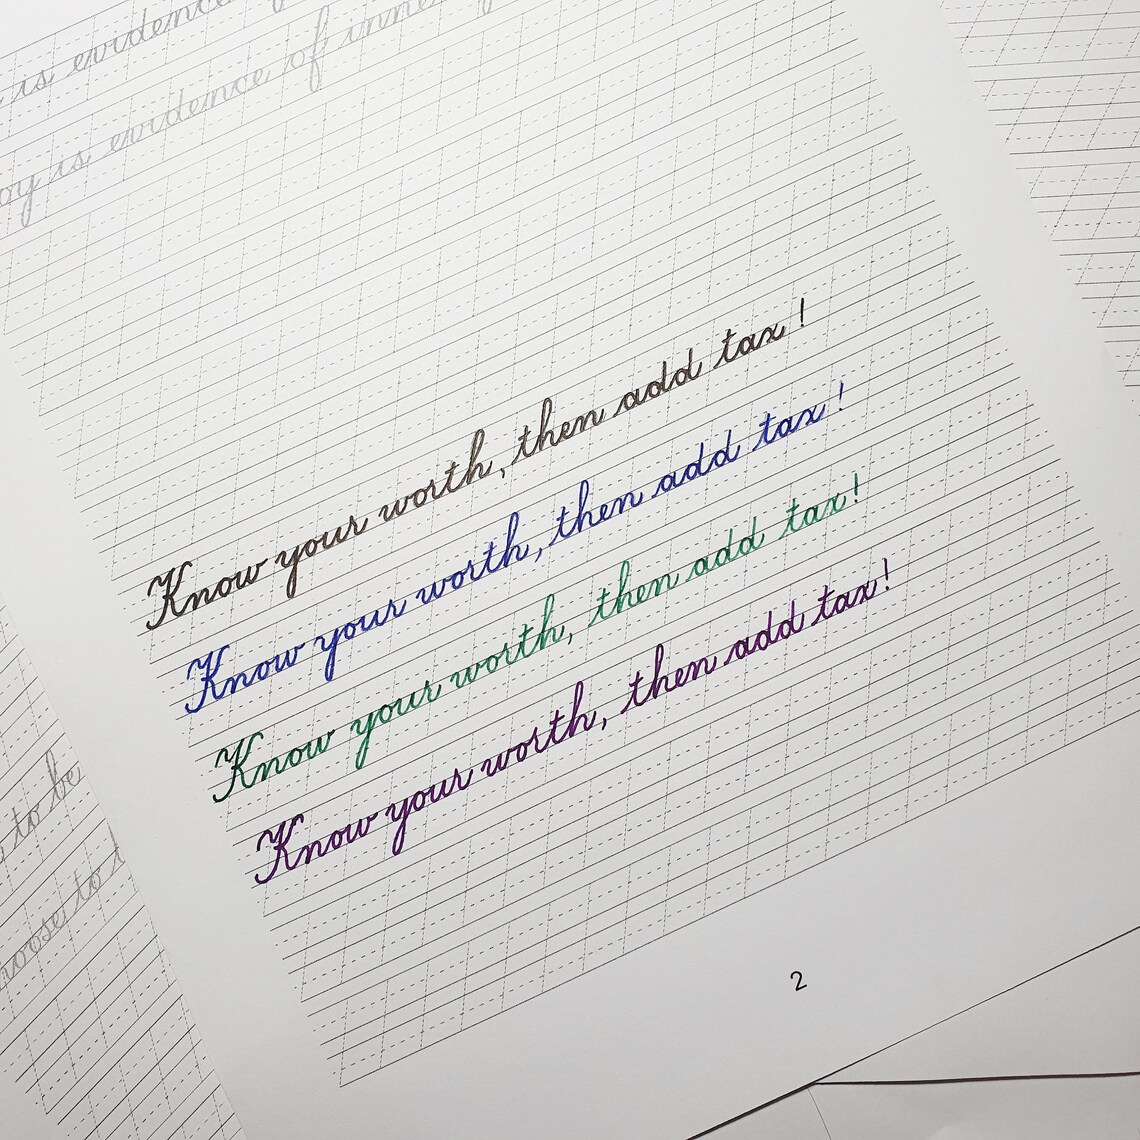 is evidence
oy is evidence of inne
Know your worth, then add tax!
Know your worth, then add tax!
Know your worth, then add tax!
Know your worth, then add tax!
to be
hoose to
2